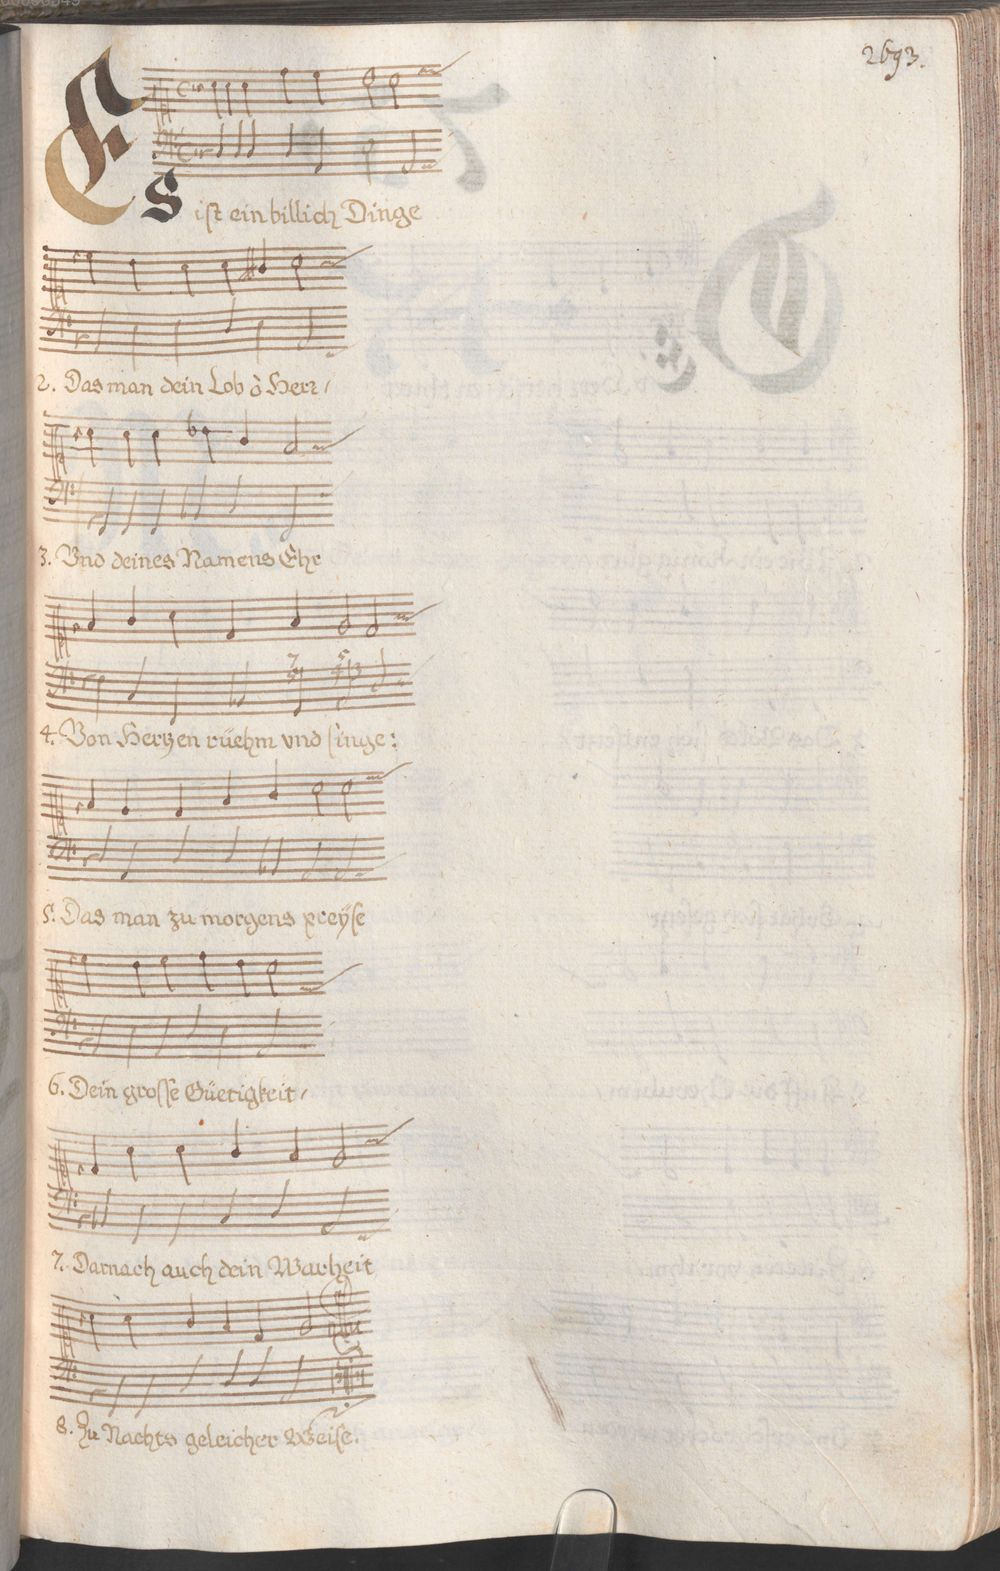 2693.
Es ist ein billich Dinge
2. Das man dein Lob ò Herr /
3. Vnd deines Namens Ehr
4. Von Hertzen rüehm vnd singe:
5. Das man zu morgens preÿse
6. Dein grosse Güetigkeit /
7. Darnach auch dein Warheit
8. Zu Nachts geleicher Weise.